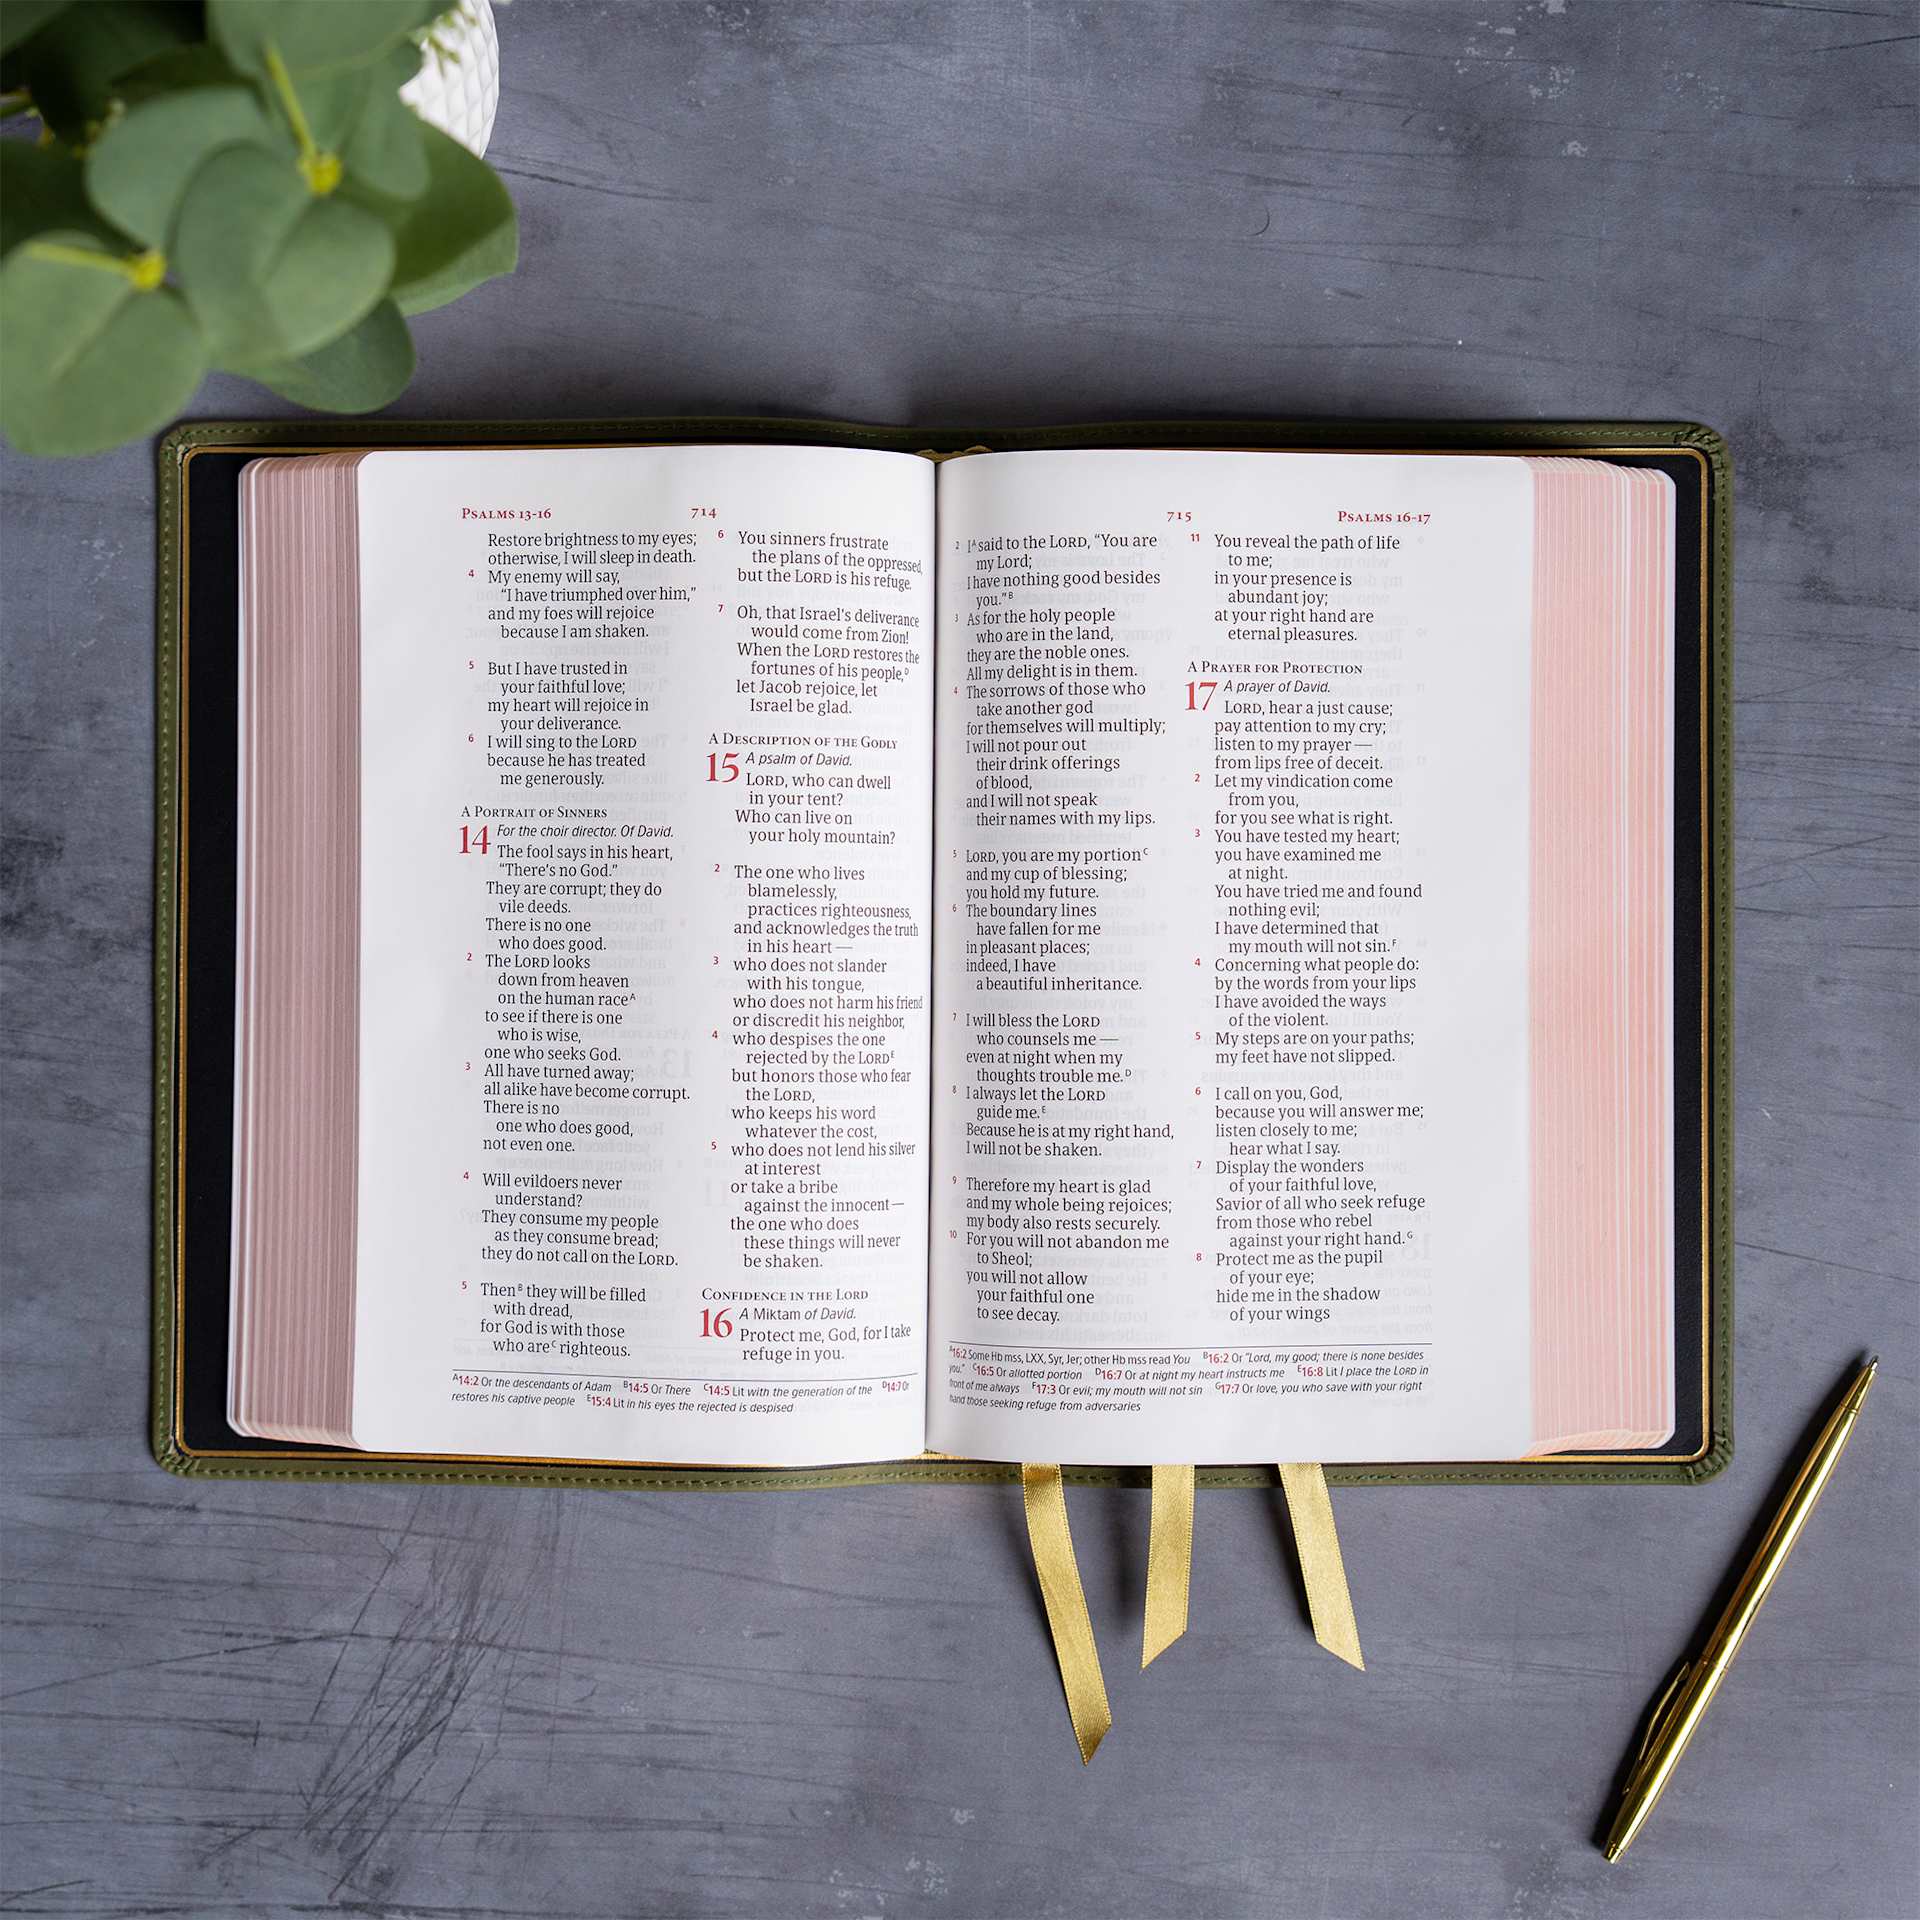 PSALMS 13-16
714
Restore brightness to my eyes;
otherwise, I will sleep in death.
4 My enemy will say,
“I have triumphed over him,”
and my foes will rejoice
because I am shaken.
5 But I have trusted in
your faithful love;
my heart will rejoice in
your deliverance.
6 I will sing to the LORD
because he has treated
me generously.
A PORTRAIT OF SINNERS
14 For the choir director. Of David.
The fool says in his heart,
“There's no God.”
They are corrupt; they do
vile deeds.
There is no one
who does good.
2 The LORD looks
down from heaven
on the human raceA
to see if there is one
who is wise,
one who seeks God.
3 All have turned away;
all alike have become corrupt.
There is no
one who does good,
not even one.
4 Will evildoers never
understand?
They consume my people
as they consume bread;
they do not call on the LORD.
5 ThenB they will be filled
with dread,
for God is with those
who areC righteous.
6 You sinners frustrate
the plans of the oppressed,
but the LORD is his refuge.
7 Oh, that Israel's deliverance
would come from Zion!
When the LORD restores the
fortunes of his people,D
let Jacob rejoice, let
Israel be glad.
A DESCRIPTION OF THE GODLY
15 A psalm of David.
LORD, who can dwell
in your tent?
Who can live on
your holy mountain?
2 The one who lives
blamelessly,
practices righteousness,
and acknowledges the truth
in his heart —
3 who does not slander
with his tongue,
who does not harm his friend
or discredit his neighbor,
4 who despises the one
rejected by the LORDE
but honors those who fear
the LORD,
who keeps his word
whatever the cost,
5 who does not lend his silver
at interest
or take a bribe
against the innocent —
the one who does
these things will never
be shaken.
CONFIDENCE IN THE LORD
16 A Miktam of David.
Protect me, God, for I take
refuge in you.
A14:2 Or the descendants of Adam B14:5 Or There C14:5 Lit with the generation of the D14:7 Or
restores his captive people E15:4 Lit in his eyes the rejected is despised
715
PSALMS 16-17
2 IA said to the LORD, “You are
my Lord;
I have nothing good besides
you.”B
3 As for the holy people
who are in the land,
they are the noble ones.
All my delight is in them.
4 The sorrows of those who
take another god
for themselves will multiply;
I will not pour out
their drink offerings
of blood,
and I will not speak
their names with my lips.
5 LORD, you are my portionC
and my cup of blessing;
you hold my future.
6 The boundary lines
have fallen for me
in pleasant places;
indeed, I have
a beautiful inheritance.
7 I will bless the LORD
who counsels me —
even at night when my
thoughts trouble me.D
8 I always let the LORD
guide me.E
Because he is at my right hand,
I will not be shaken.
9 Therefore my heart is glad
and my whole being rejoices;
my body also rests securely.
10 For you will not abandon me
to Sheol;
you will not allow
your faithful one
to see decay.
11 You reveal the path of life
to me;
in your presence is
abundant joy;
at your right hand are
eternal pleasures.
A PRAYER FOR PROTECTION
17 A prayer of David.
LORD, hear a just cause;
pay attention to my cry;
listen to my prayer —
from lips free of deceit.
2 Let my vindication come
from you,
for you see what is right.
3 You have tested my heart;
you have examined me
at night.
You have tried me and found
nothing evil;
I have determined that
my mouth will not sin.F
4 Concerning what people do:
by the words from your lips
I have avoided the ways
of the violent.
5 My steps are on your paths;
my feet have not slipped.
6 I call on you, God,
because you will answer me;
listen closely to me;
hear what I say.
7 Display the wonders
of your faithful love,
Savior of all who seek refuge
from those who rebel
against your right hand.G
8 Protect me as the pupil
of your eye;
hide me in the shadow
of your wings
A16:2 Some Hb mss, LXX, Syr, Jer; other Hb mss read You B16:2 Or “Lord, my good; there is none besides
you.” C16:5 Or allotted portion D16:7 Or at night my heart instructs me E16:8 Lit I place the LORD in
front of me always F17:3 Or evil; my mouth will not sin G17:7 Or love, you who save with your right
hand those seeking refuge from adversaries